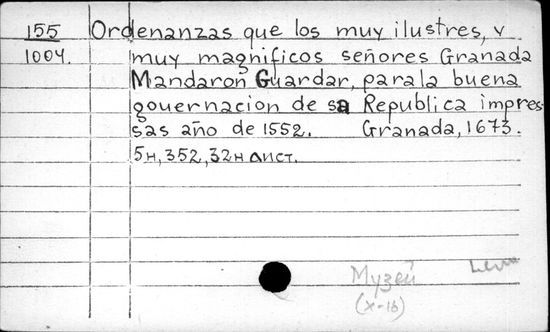 155 Ordenanzas que los muy ilustres, y
1004. muy magnificos señores Granada
Mandaron Guardar, para la buena
gouernacion de sa Republica impres-
sas año de 1552. Granada, 1673.
5н, 352, 32н лист.
Музей
(X-16)